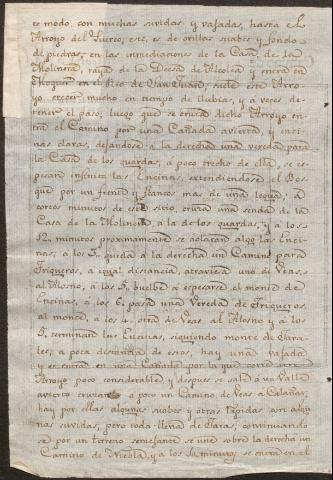 te modo, con muchas suvidas, y vajadas, hasta el
Arroyo del Puerco; este, es de orillas suabes y fondo
de piedras, en las inmediaciones de la Casa de la
Molineta, raya de la Deesa de Alcolea y entra en
Trigueros en el Rio de San Juan, suele este Arro-
yo, crecer mucho en tiempo de llubias, y a veces de-
tener el paso; luego que se cruza dicho Arroyo en-
tra el Camino por una Cañada avierta, y enci-
nas claras, dejandose á la derecha una vereda para
la Casa de los guardas, a poco trecho de ella, se es-
pesan infinito las Encinas, extendiendose el Bos-
que por un frente y flancos mas de una legua; á
cortos minutos de este sitio, cruza una senda de la
Casa de la Molineta, á la de los guardas, y á los
12, minutos proximamente se aclaran algo las Enci-
nas; á los 5, queda á la derecha un Camino para
Trigueros, a igual distancia, atraviesa uno de Veas
al Alosno, á los 5, buelbe á espesarse el monte de
Encinas, á los 6, pasa una Vereda de Trigueros,
al monte, á los 4, otra de Veas al Alosno y á los
5, terminan las Encinas, siguiendo monte de Jara-
les; a poca distancia de estos, hay una vajada
y se entra en una Cañada por la que corre un
Arroyo poco considerable, y despues se sale á un Valle
avierto cruzando a poco un Camino de Veas á Calañas,
hay por ellas algunas suabes y otras rapidas, con algu-
nas suvidas, pero toda llena de Jaras, continuando-
se por un terreno semejante se une sobre la derecha un
Camino de Niebla, y á los 10, minutos se entra en el